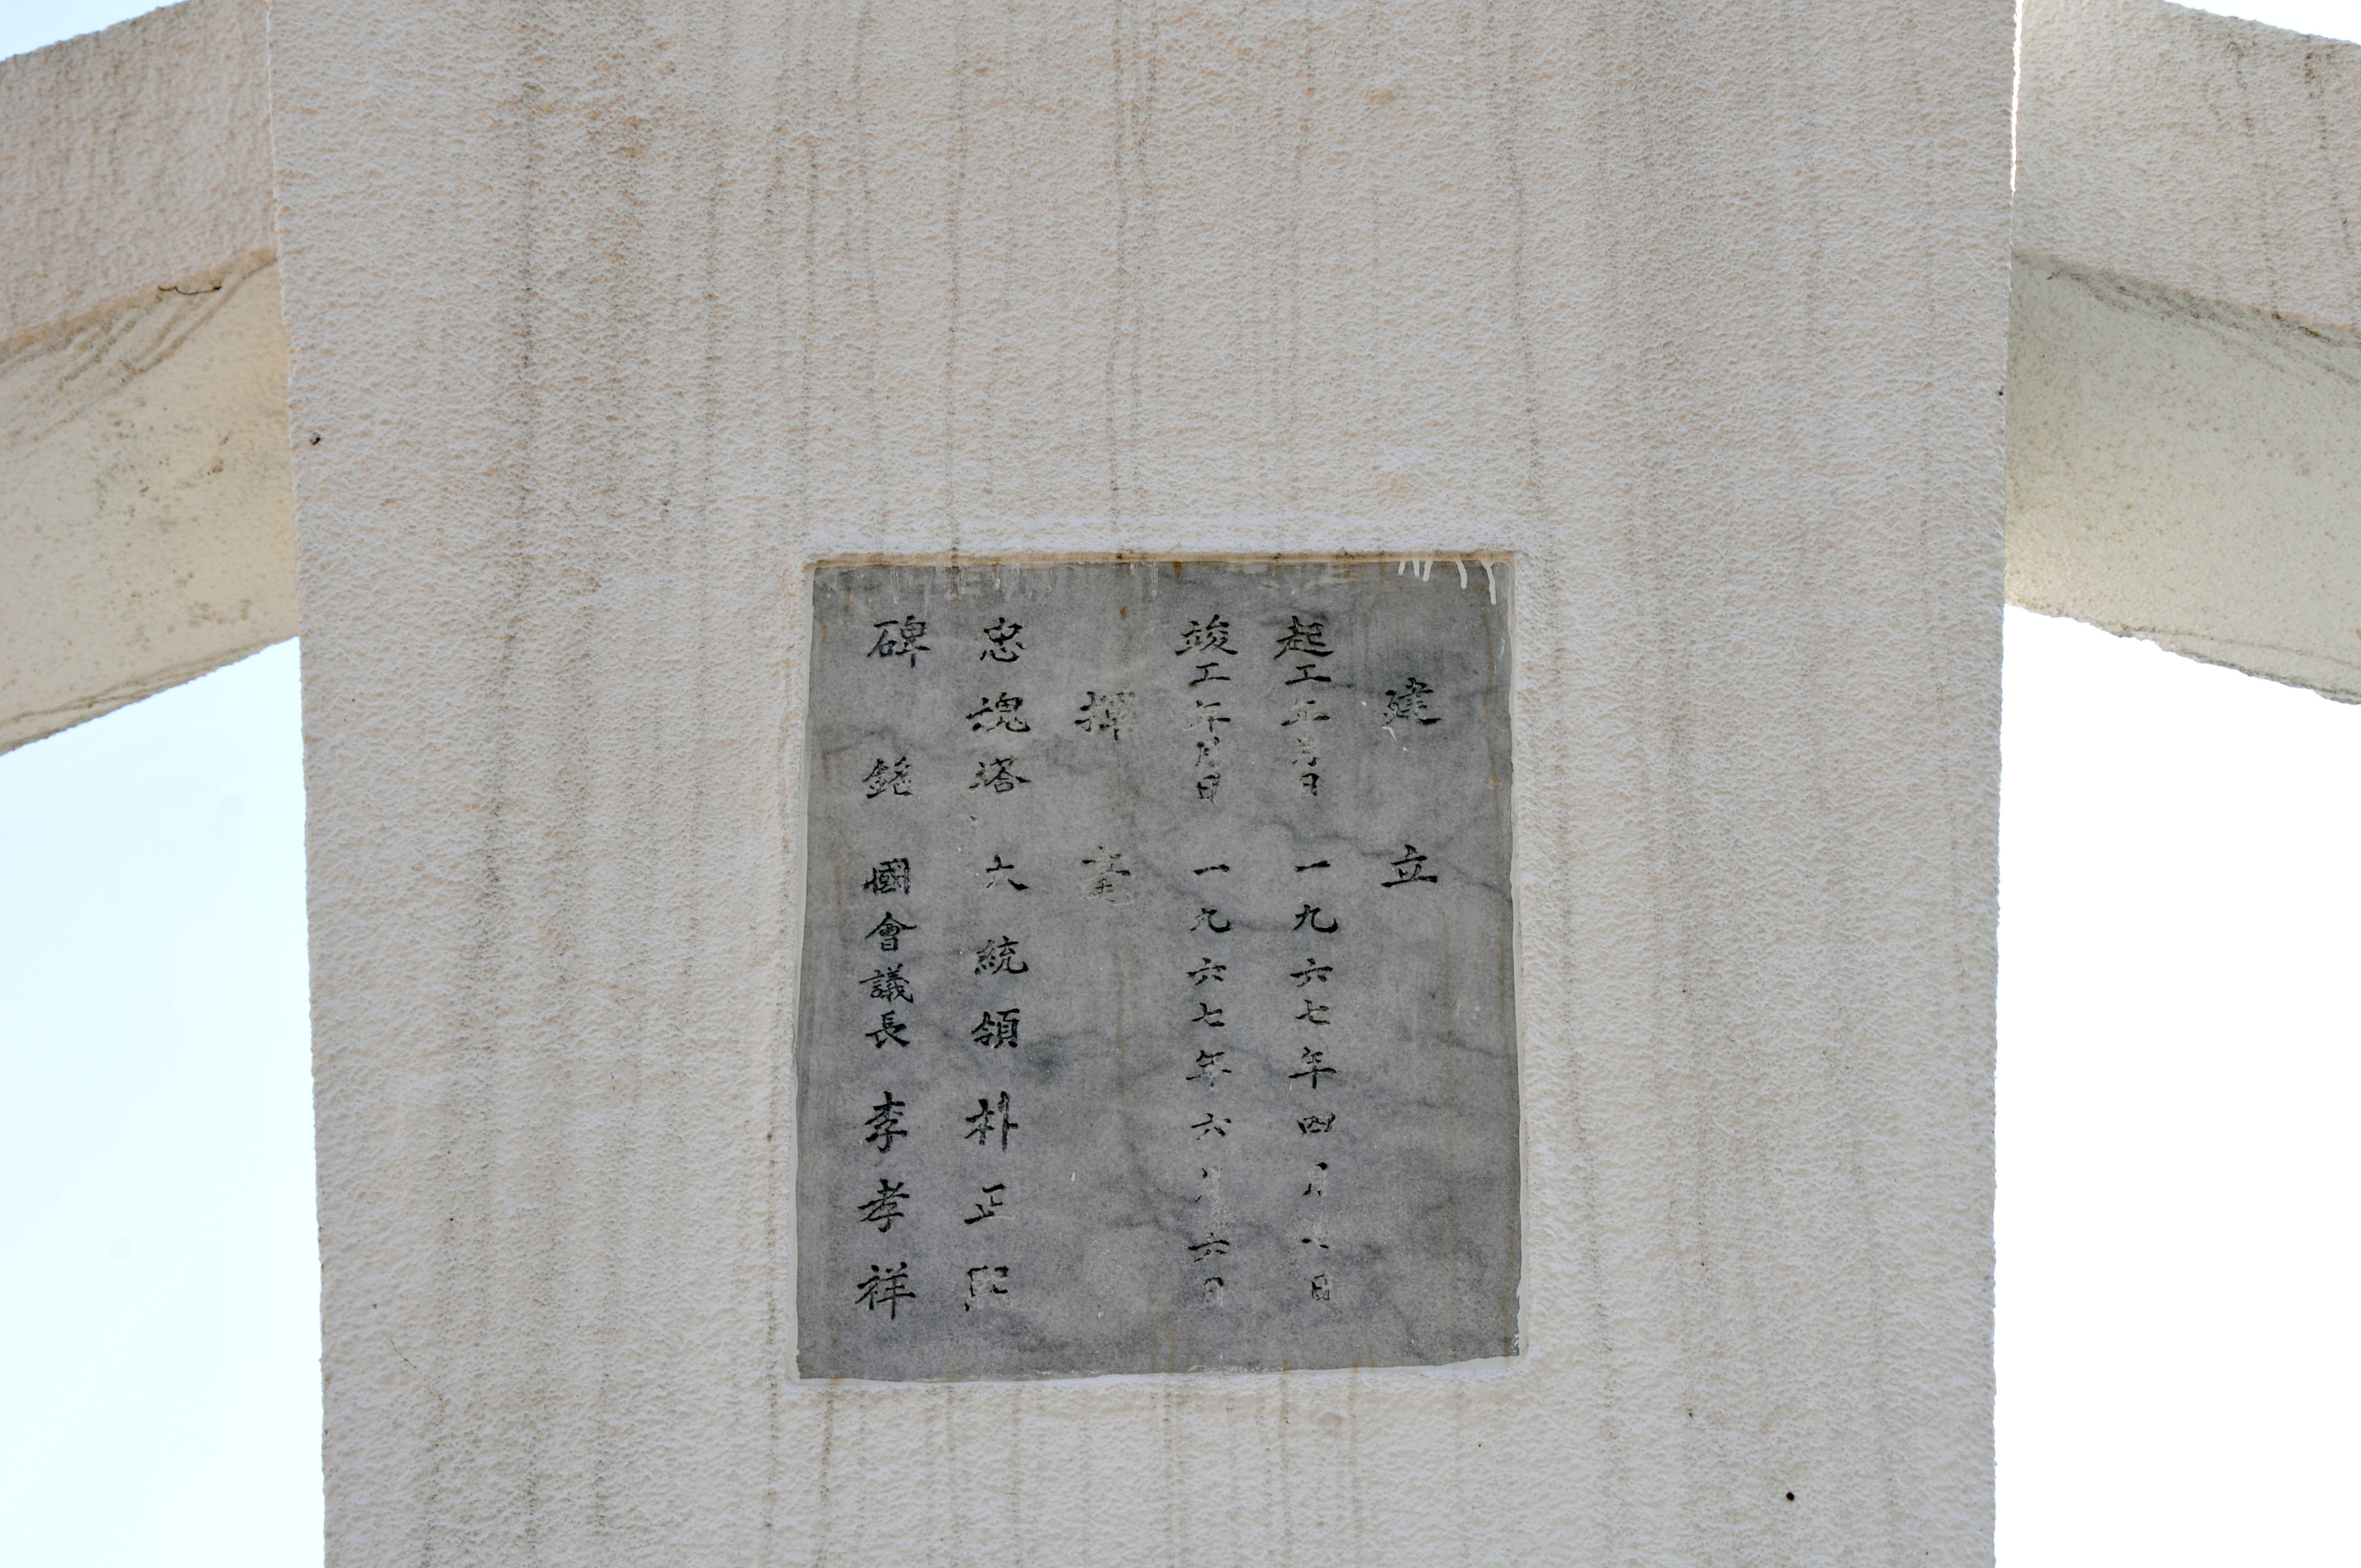 建立
起工年月日 一九六七年四月 日
竣工年月日 一九六七年六月六日
揮毫
忠魂塔 大統領 朴正熙
碑銘 國會議長 李孝祥